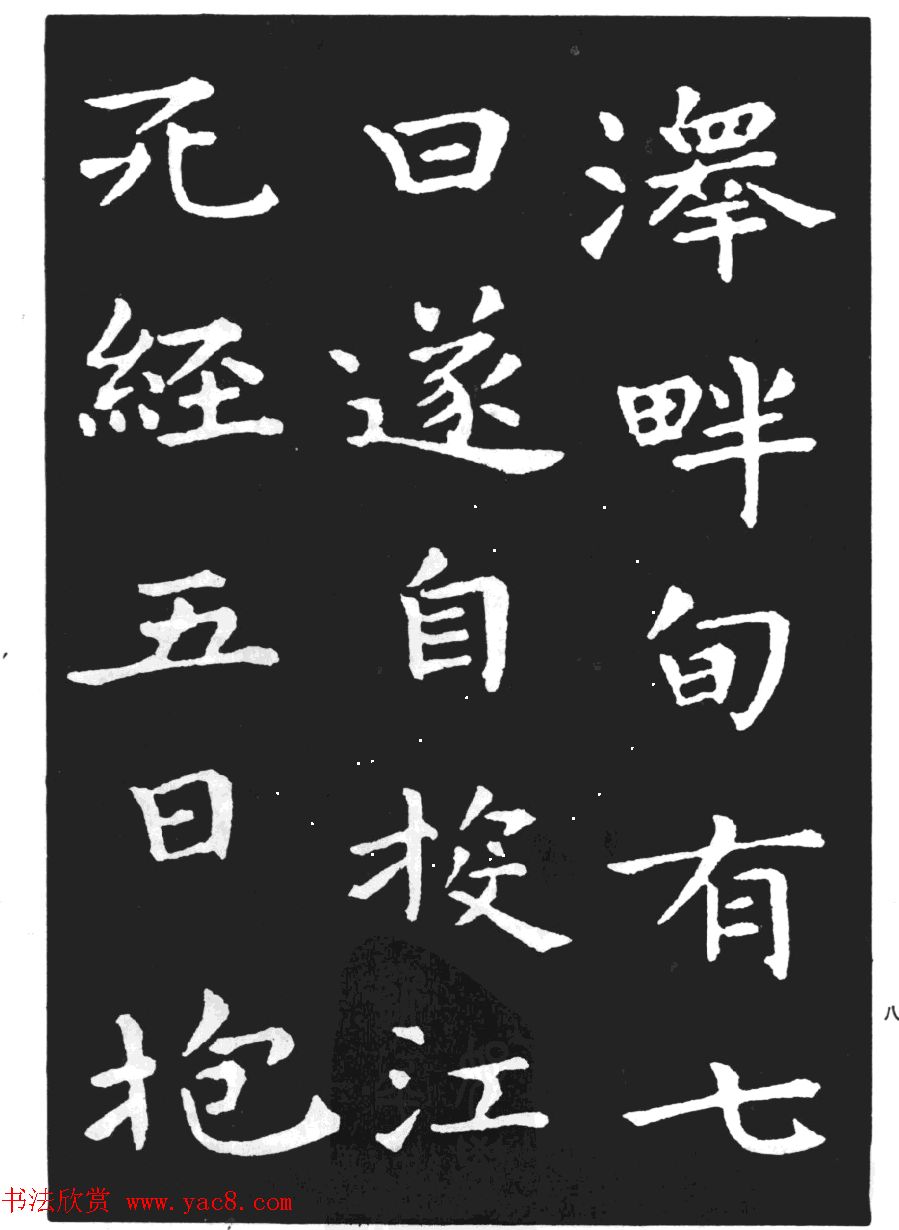 澤畔旬有七
日遂自投江
死經五日抱
八
书法欣赏 www.yac8.com